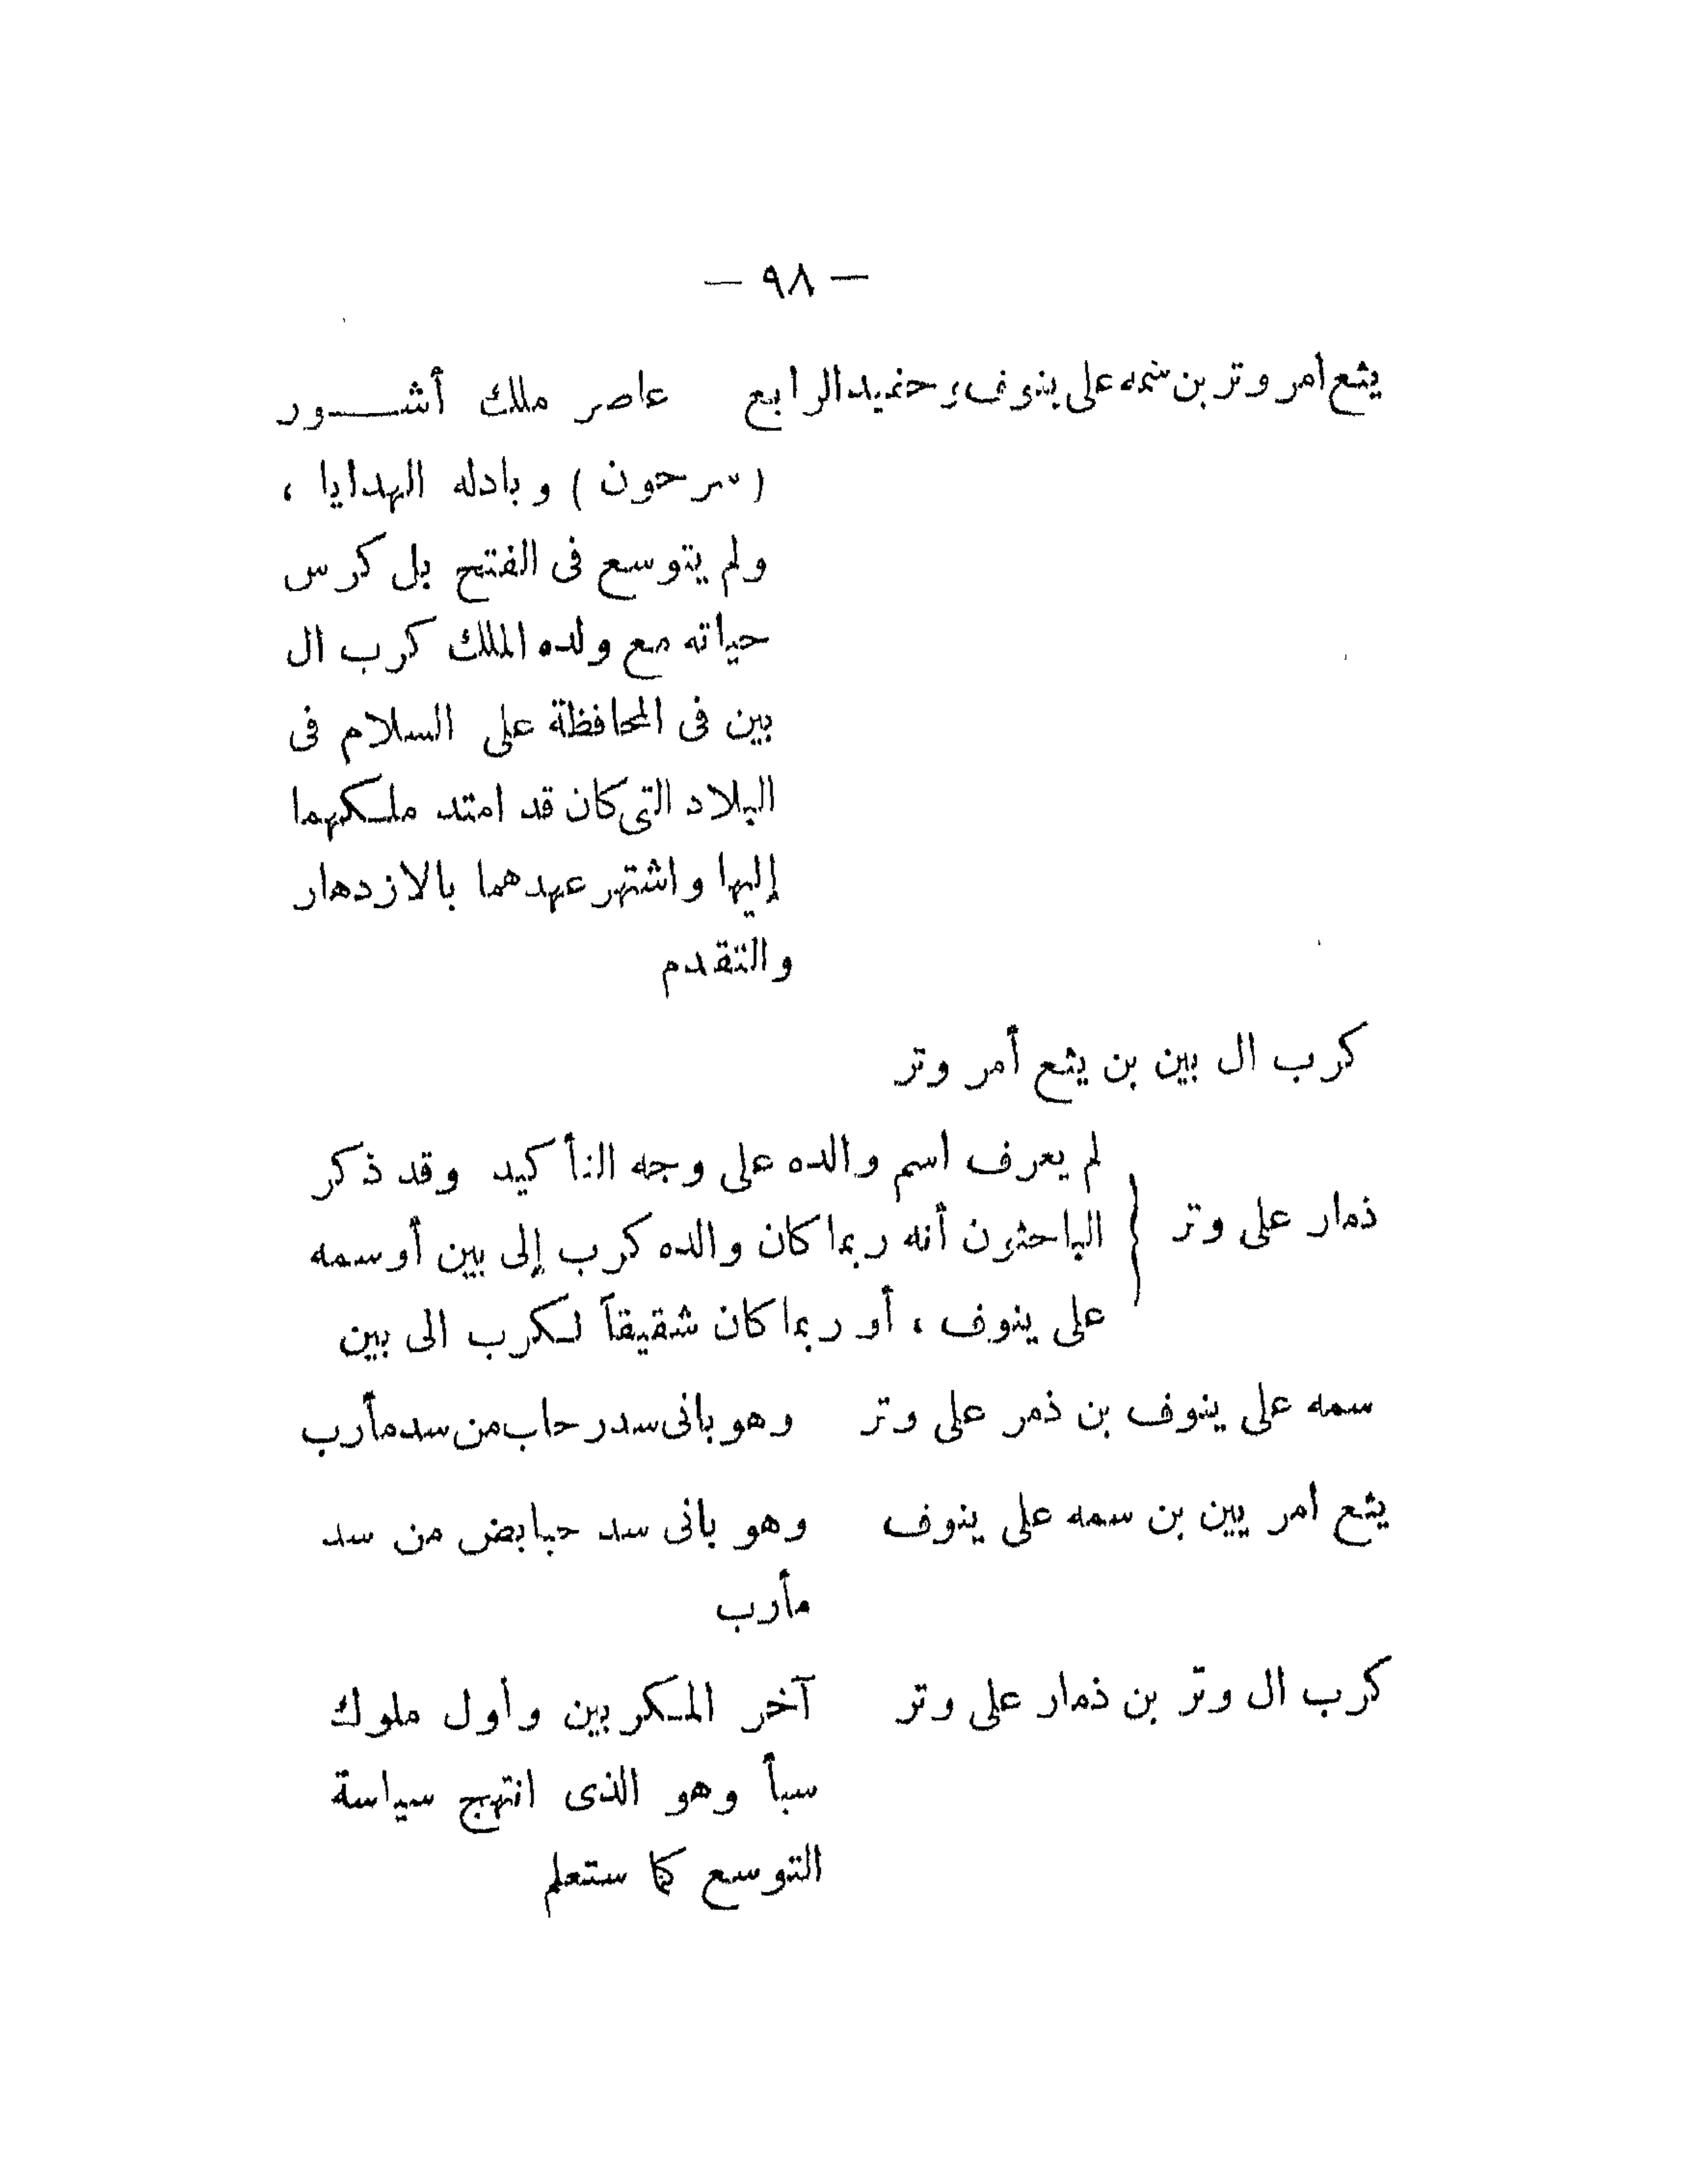 — ٩٨ —
يثع أمر وتر بن سمه على ينوف حفيد الرابع عاصر ملك أشـــور
( سرحون ) وبادله الهدايا ،
ولم يتوسع فى الفتح بل كرس
حياته مع ولده الملك كرب ال
بين فى المحافظة على السلام فى
البلاد التى كان قد امتد ملكهما
إليها واشتهر عهدهما بالازدهار
والتقدم
كرب ال بين بن يثع أمر وتر
لم يعرف اسم والده على وجه التأكيد وقد ذكر
ذمار على وتر { الباحثون أنه ربما كان والده كرب إلى بين أو سمه
على ينوف ، أو ربما كان شقيقاً لكرب الى بين
سمه على ينوف بن ذمر على وتر وهو بانى سد رحاب من سد مأرب
يثع امر يين بن سمه على ينوف وهو بانى سد حبابض من سد
مأرب
كرب ال وتر بن ذمار على وتر آخر المكربين وأول ملوك
سبأ وهو الذى انتهج سياسة
التوسع كما ستعلم